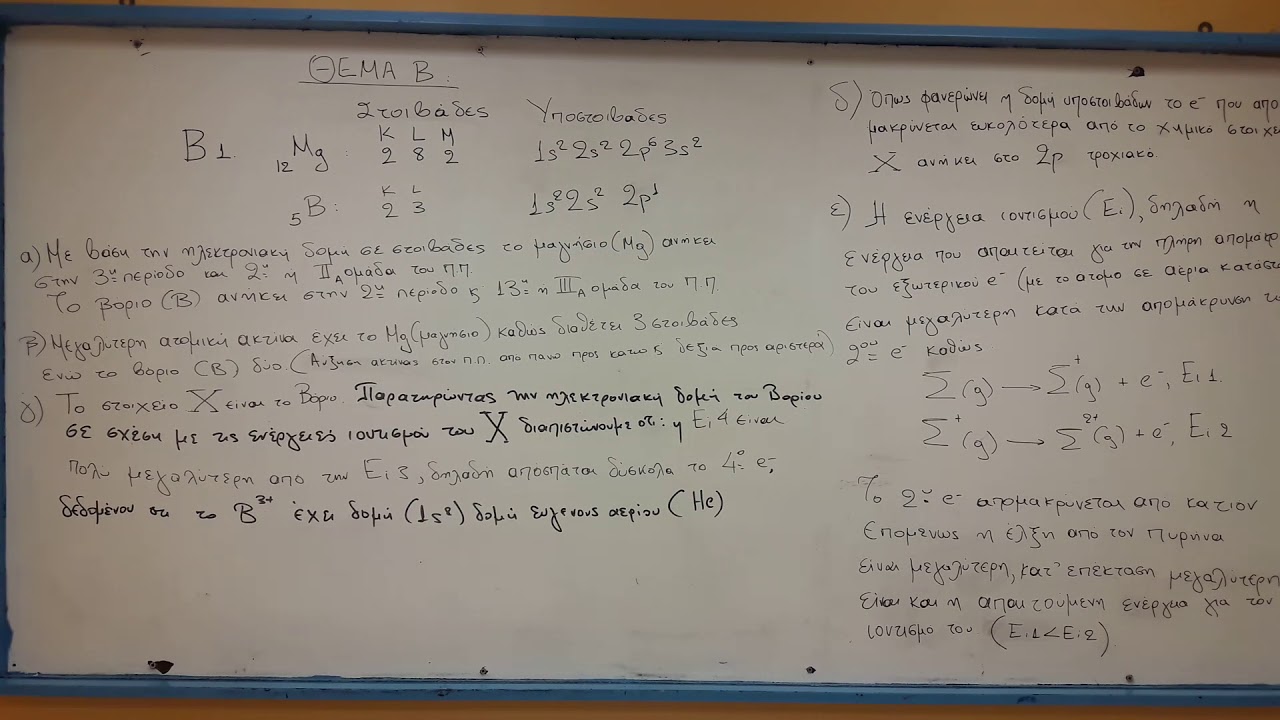 ΘΕΜΑ Β.
Στοιβάδες Υποστοιβάδες
K L M
B1. ₁₂Mg : 2 8 2 1s² 2s² 2p⁶ 3s²
K L
₅B : 2 3 1s² 2s² 2p¹
α) Με βάση την ηλεκτρονιακή δομή σε στοιβάδες το μαγνήσιο (Mg) ανήκει
στην 3η περίοδο και 2η ή IIA ομάδα του Π.Π.
Το βόριο (B) ανήκει στην 2η περίοδο κ 13η ή IIIA ομάδα του Π.Π.
β) Μεγαλύτερη ατομική ακτίνα έχει το Mg (μαγνήσιο) καθώς διαθέτει 3 στοιβάδες
ενώ το βόριο (B) δύο. (Αύξηση ακτίνας στον π.π. από πάνω προς κάτω κ δεξιά προς αριστερά)
γ) Το στοιχείο X είναι το Βόριο. Παρατηρώντας την ηλεκτρονιακή δομή του Βορίου
σε σχέση με τις ενέργειες ιοντισμού του X διαπιστώνουμε ότι: η Ei4 είναι
πολύ μεγαλύτερη από την Ei3, δηλαδή αποσπάται δύσκολα το 4ο e⁻,
δεδομένου ότι το B³⁺ έχει δομή (1s²) δομή ευγενούς αερίου (He)
δ) Όπως φανερώνει η δομή υποστοιβάδων το e⁻ που απο
μακρύνεται ευκολότερα από το χημικό στοιχε
X ανήκει στο 2p τροχιακό.
ε) Η ενέργεια ιοντισμού (Ei), δηλαδή η
ενέργεια που απαιτείται για την πλήρη απομάκρ
του εξωτερικού e⁻ (με το άτομο σε αέρια κατάστ
είναι μεγαλύτερη κατά την απομάκρυνση τ
2ου e⁻ καθώς
Σ(g) → Σ⁺(g) + e⁻, Ei1.
Σ⁺(g) → Σ²⁺(g) + e⁻, Ei2
Το 2ο e⁻ απομακρύνεται από κατιον
επομένως η έλξη από τον πυρήνα
είναι μεγαλύτερη, κατ' επέκταση μεγαλύτερη
είναι και η απαιτούμενη ενέργεια για τον
ιοντισμό του (Ei1<Ei2)